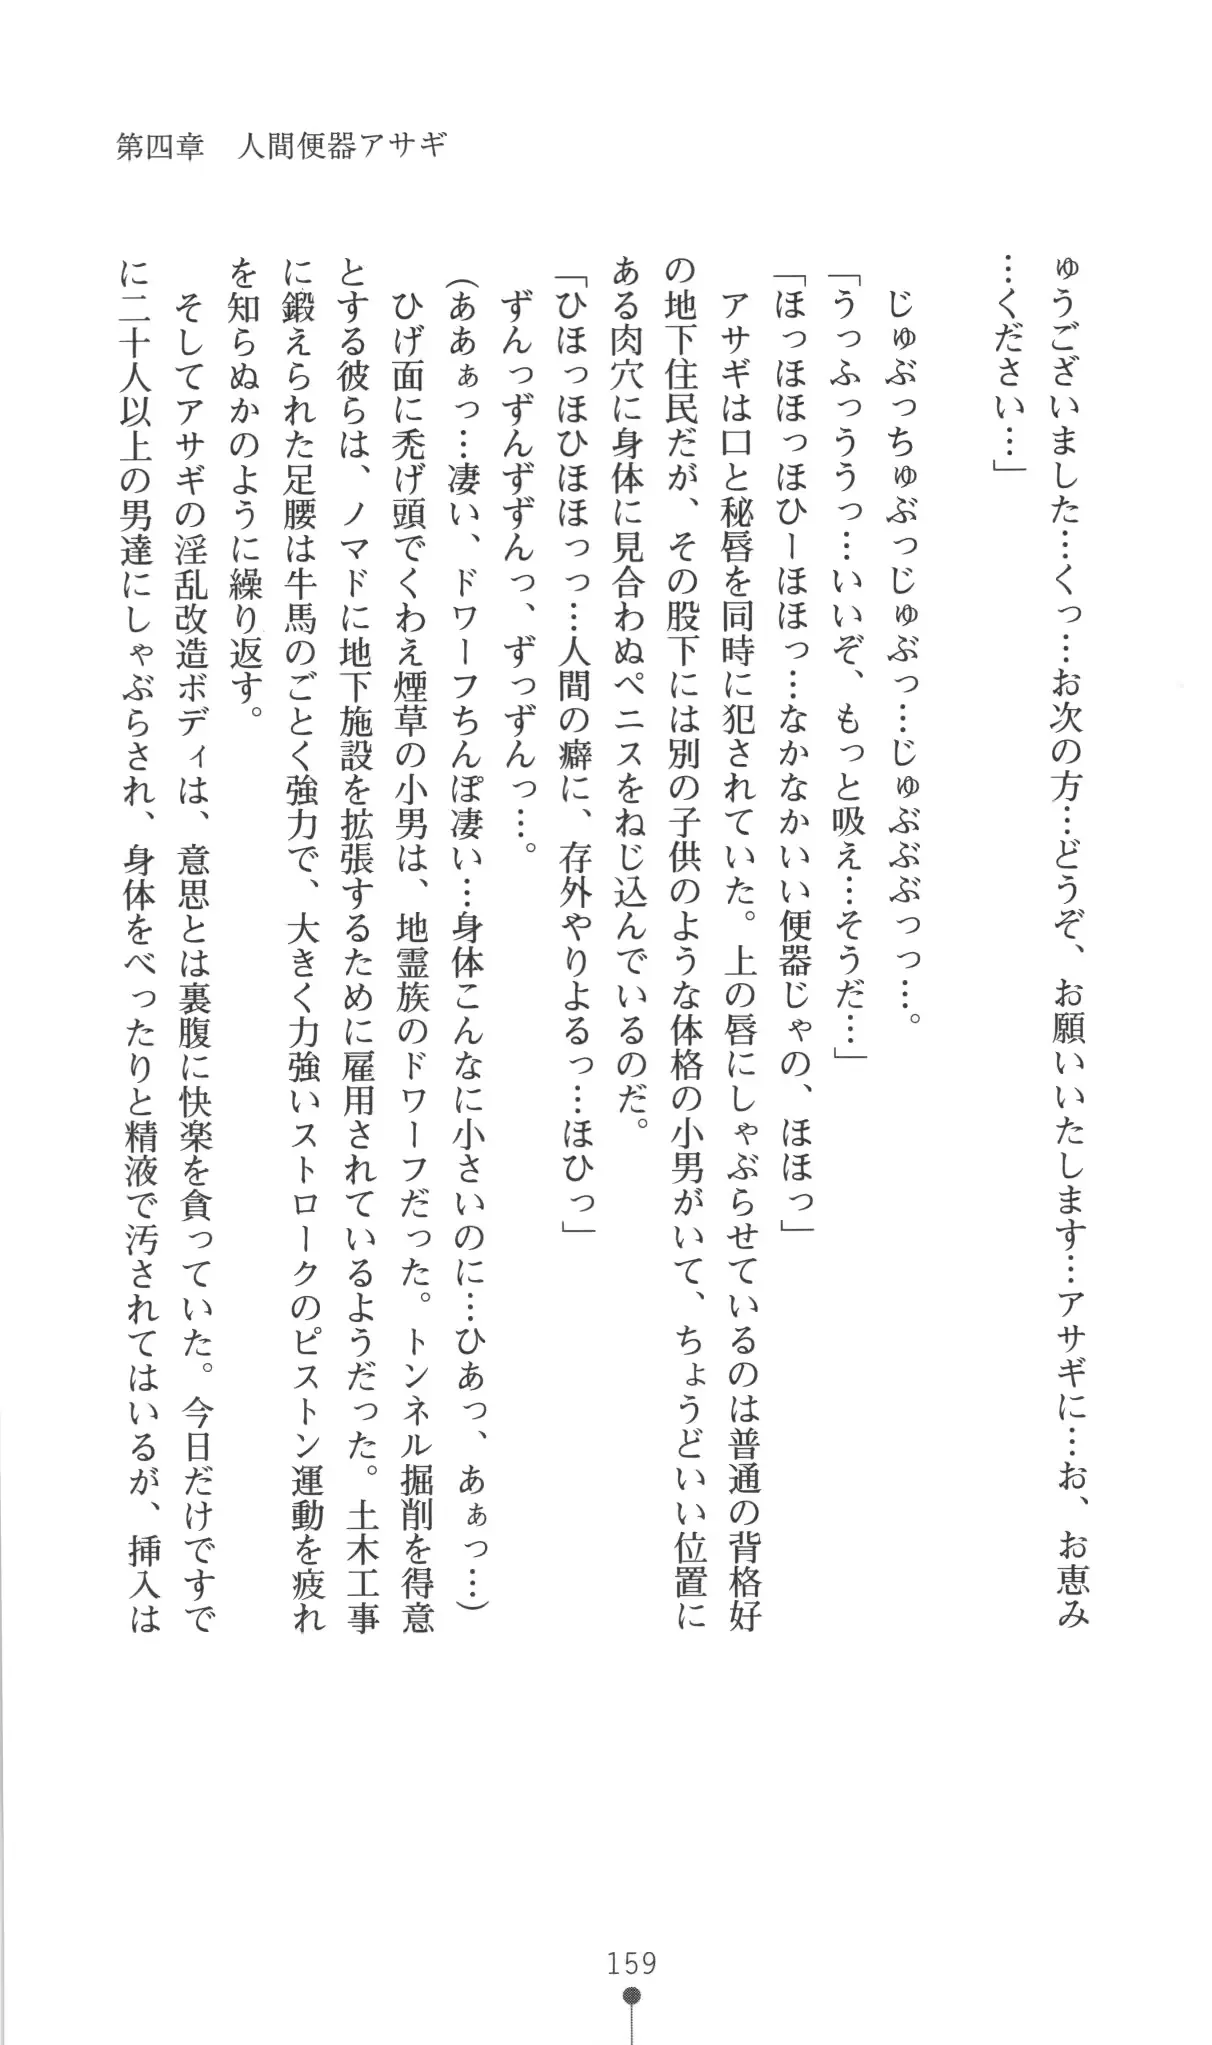 第四章　人間便器アサギ
ゅうございました…くっ…お次の方…どうぞ、お願いいたします…アサギに…お、お恵み
…ください…」
じゅぶっちゅぶっじゅぶっ…じゅぶぶぶっっ…。
「うっふっううっ…いいぞ、もっと吸え…そうだ…」
「ほっほほっほひーほほっ…なかなかいい便器じゃの、ほほっ」
アサギは口と秘唇を同時に犯されていた。上の唇にしゃぶらせているのは普通の背格好
の地下住民だが、その股下には別の子供のような体格の小男がいて、ちょうどいい位置に
ある肉穴に身体に見合わぬペニスをねじ込んでいるのだ。
「ひほっほひほほっっ…人間の癖に、存外やりよるっ…ほひっ」
ずんっずんずずんっ、ずっずんっ…。
(ああぁっ…凄い、ドワーフちんぽ凄い…身体こんなに小さいのに…ひあっ、あぁっ…)
ひげ面に禿げ頭でくわえ煙草の小男は、地霊族のドワーフだった。トンネル掘削を得意
とする彼らは、ノマドに地下施設を拡張するために雇用されているようだった。土木工事
に鍛えられた足腰は牛馬のごとく強力で、大きく力強いストロークのピストン運動を疲れ
を知らぬかのように繰り返す。
そしてアサギの淫乱改造ボディは、意思とは裏腹に快楽を貪っていた。今日だけですで
に二十人以上の男達にしゃぶらされ、身体をべったりと精液で汚されてはいるが、挿入は
159